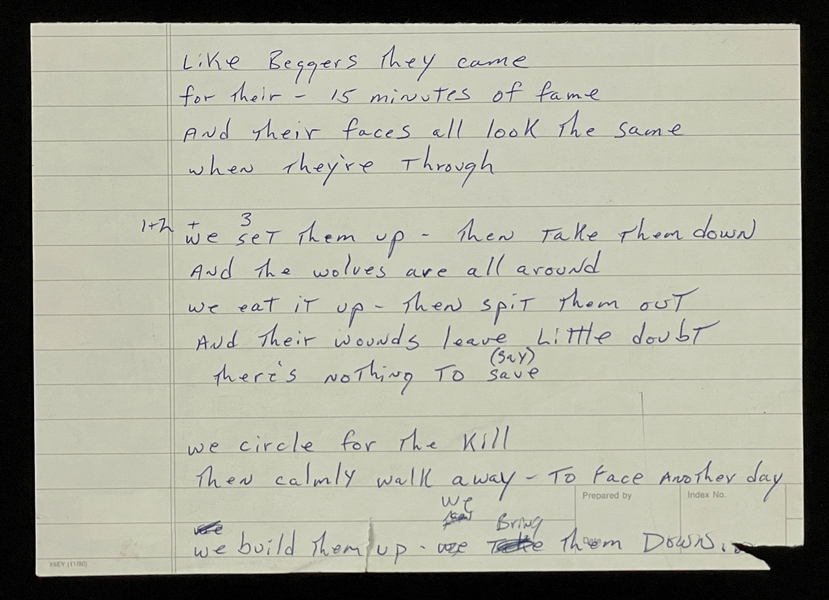 Like Beggers they came
for their - 15 minutes of fame
And their faces all look the same
when they're Through
1+2 + 3
we set them up - then Take them down
And the wolves are all around
we eat it up - then spit them out
And their wounds leave Little doubt
(say)
there's nothing to save
we circle for the kill
Then calmly walk away - To face Another day
Prepared by Index No.
we
Bring
we build them up - we Take them Down..